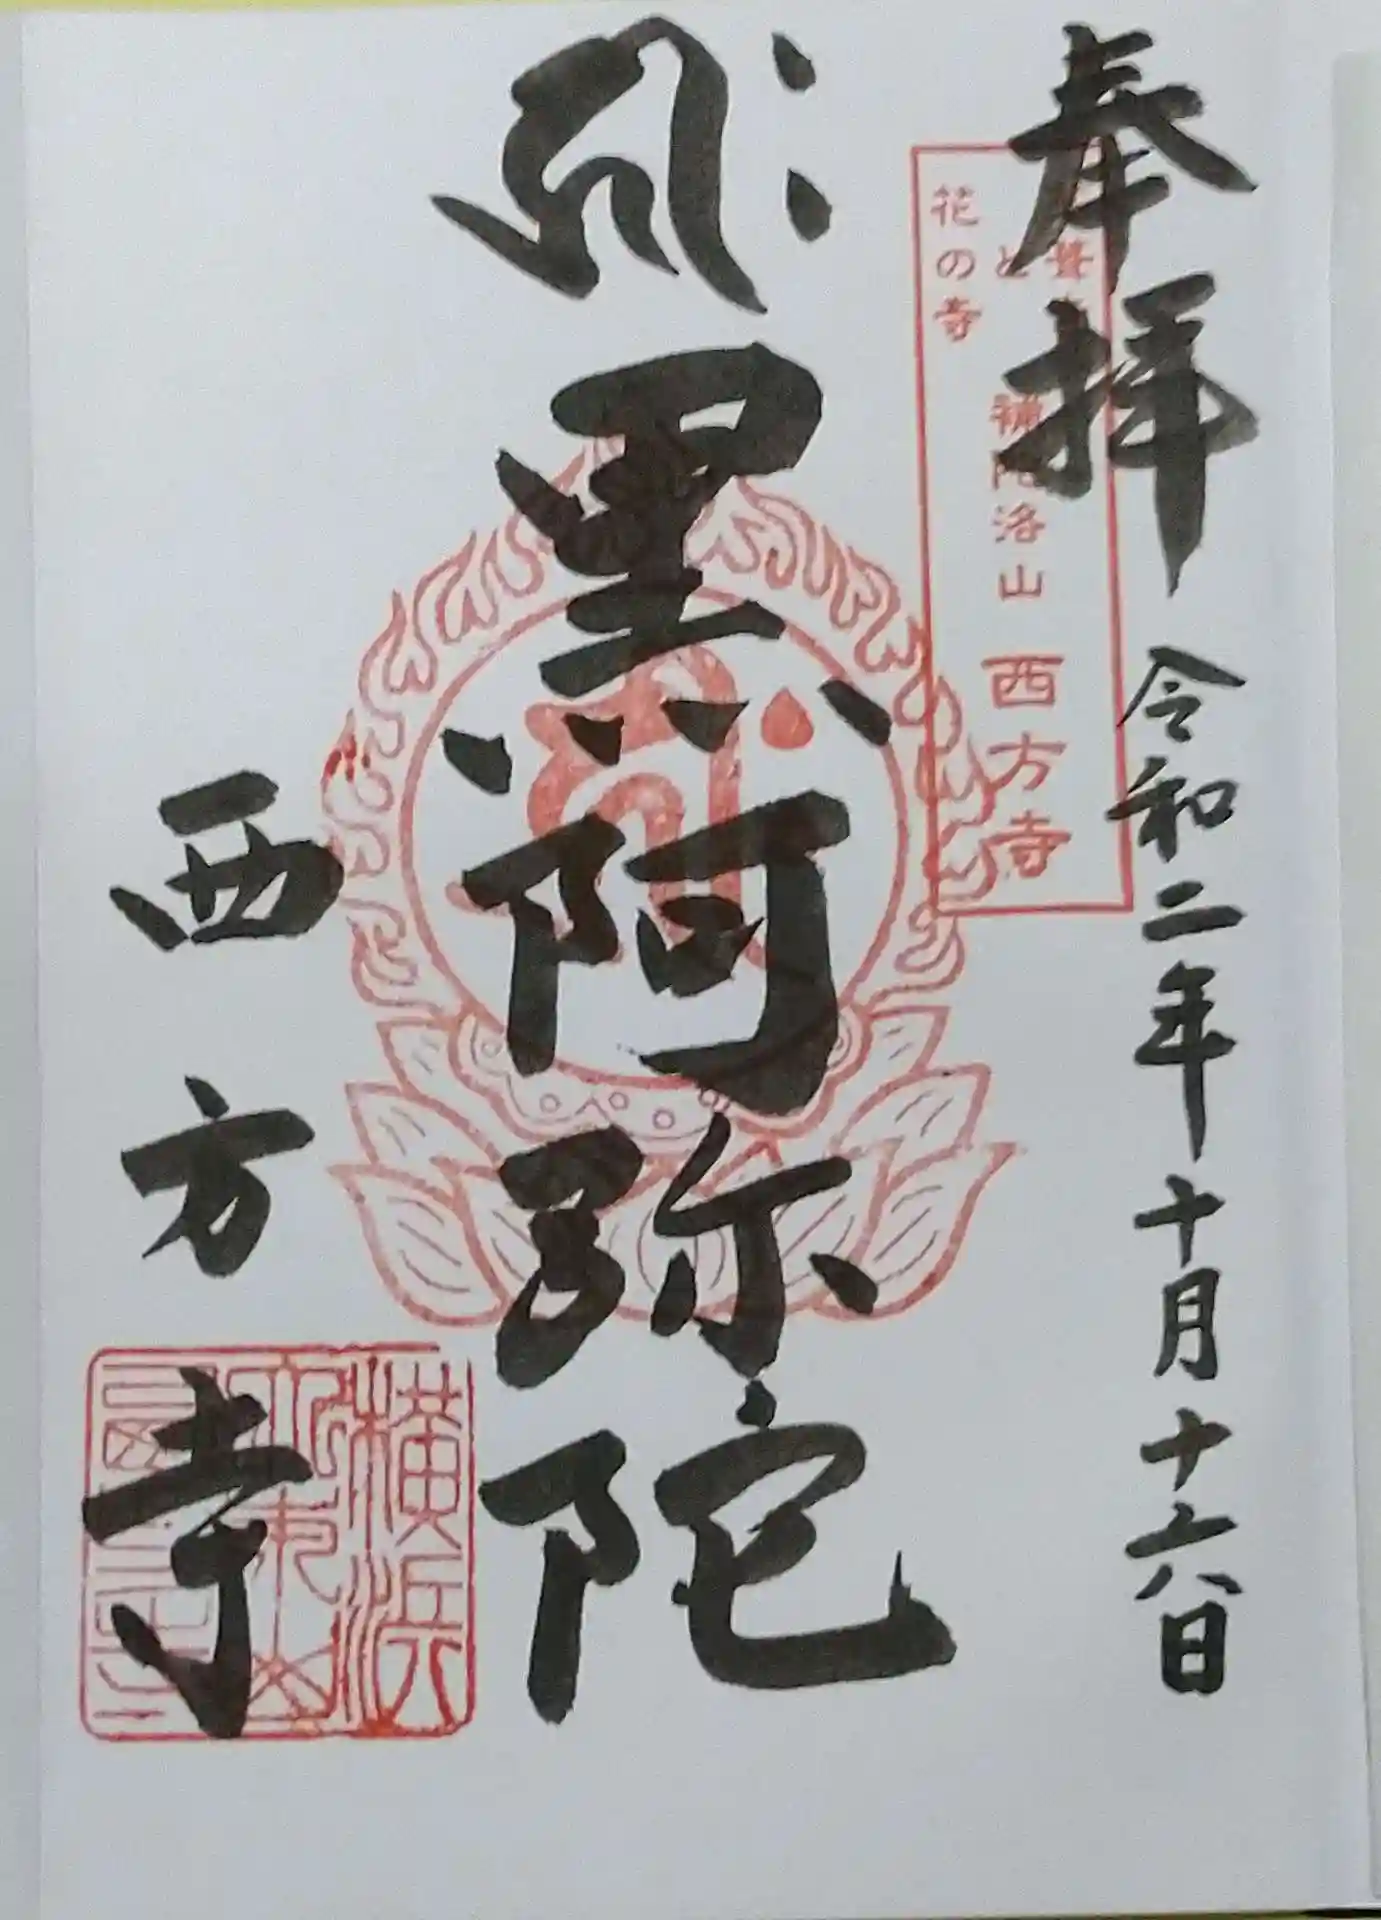 奉拝 令和二年十月十六日
と
花の寺
補陀洛山 西方寺
キリーク 黒阿弥陀
西方寺
横浜